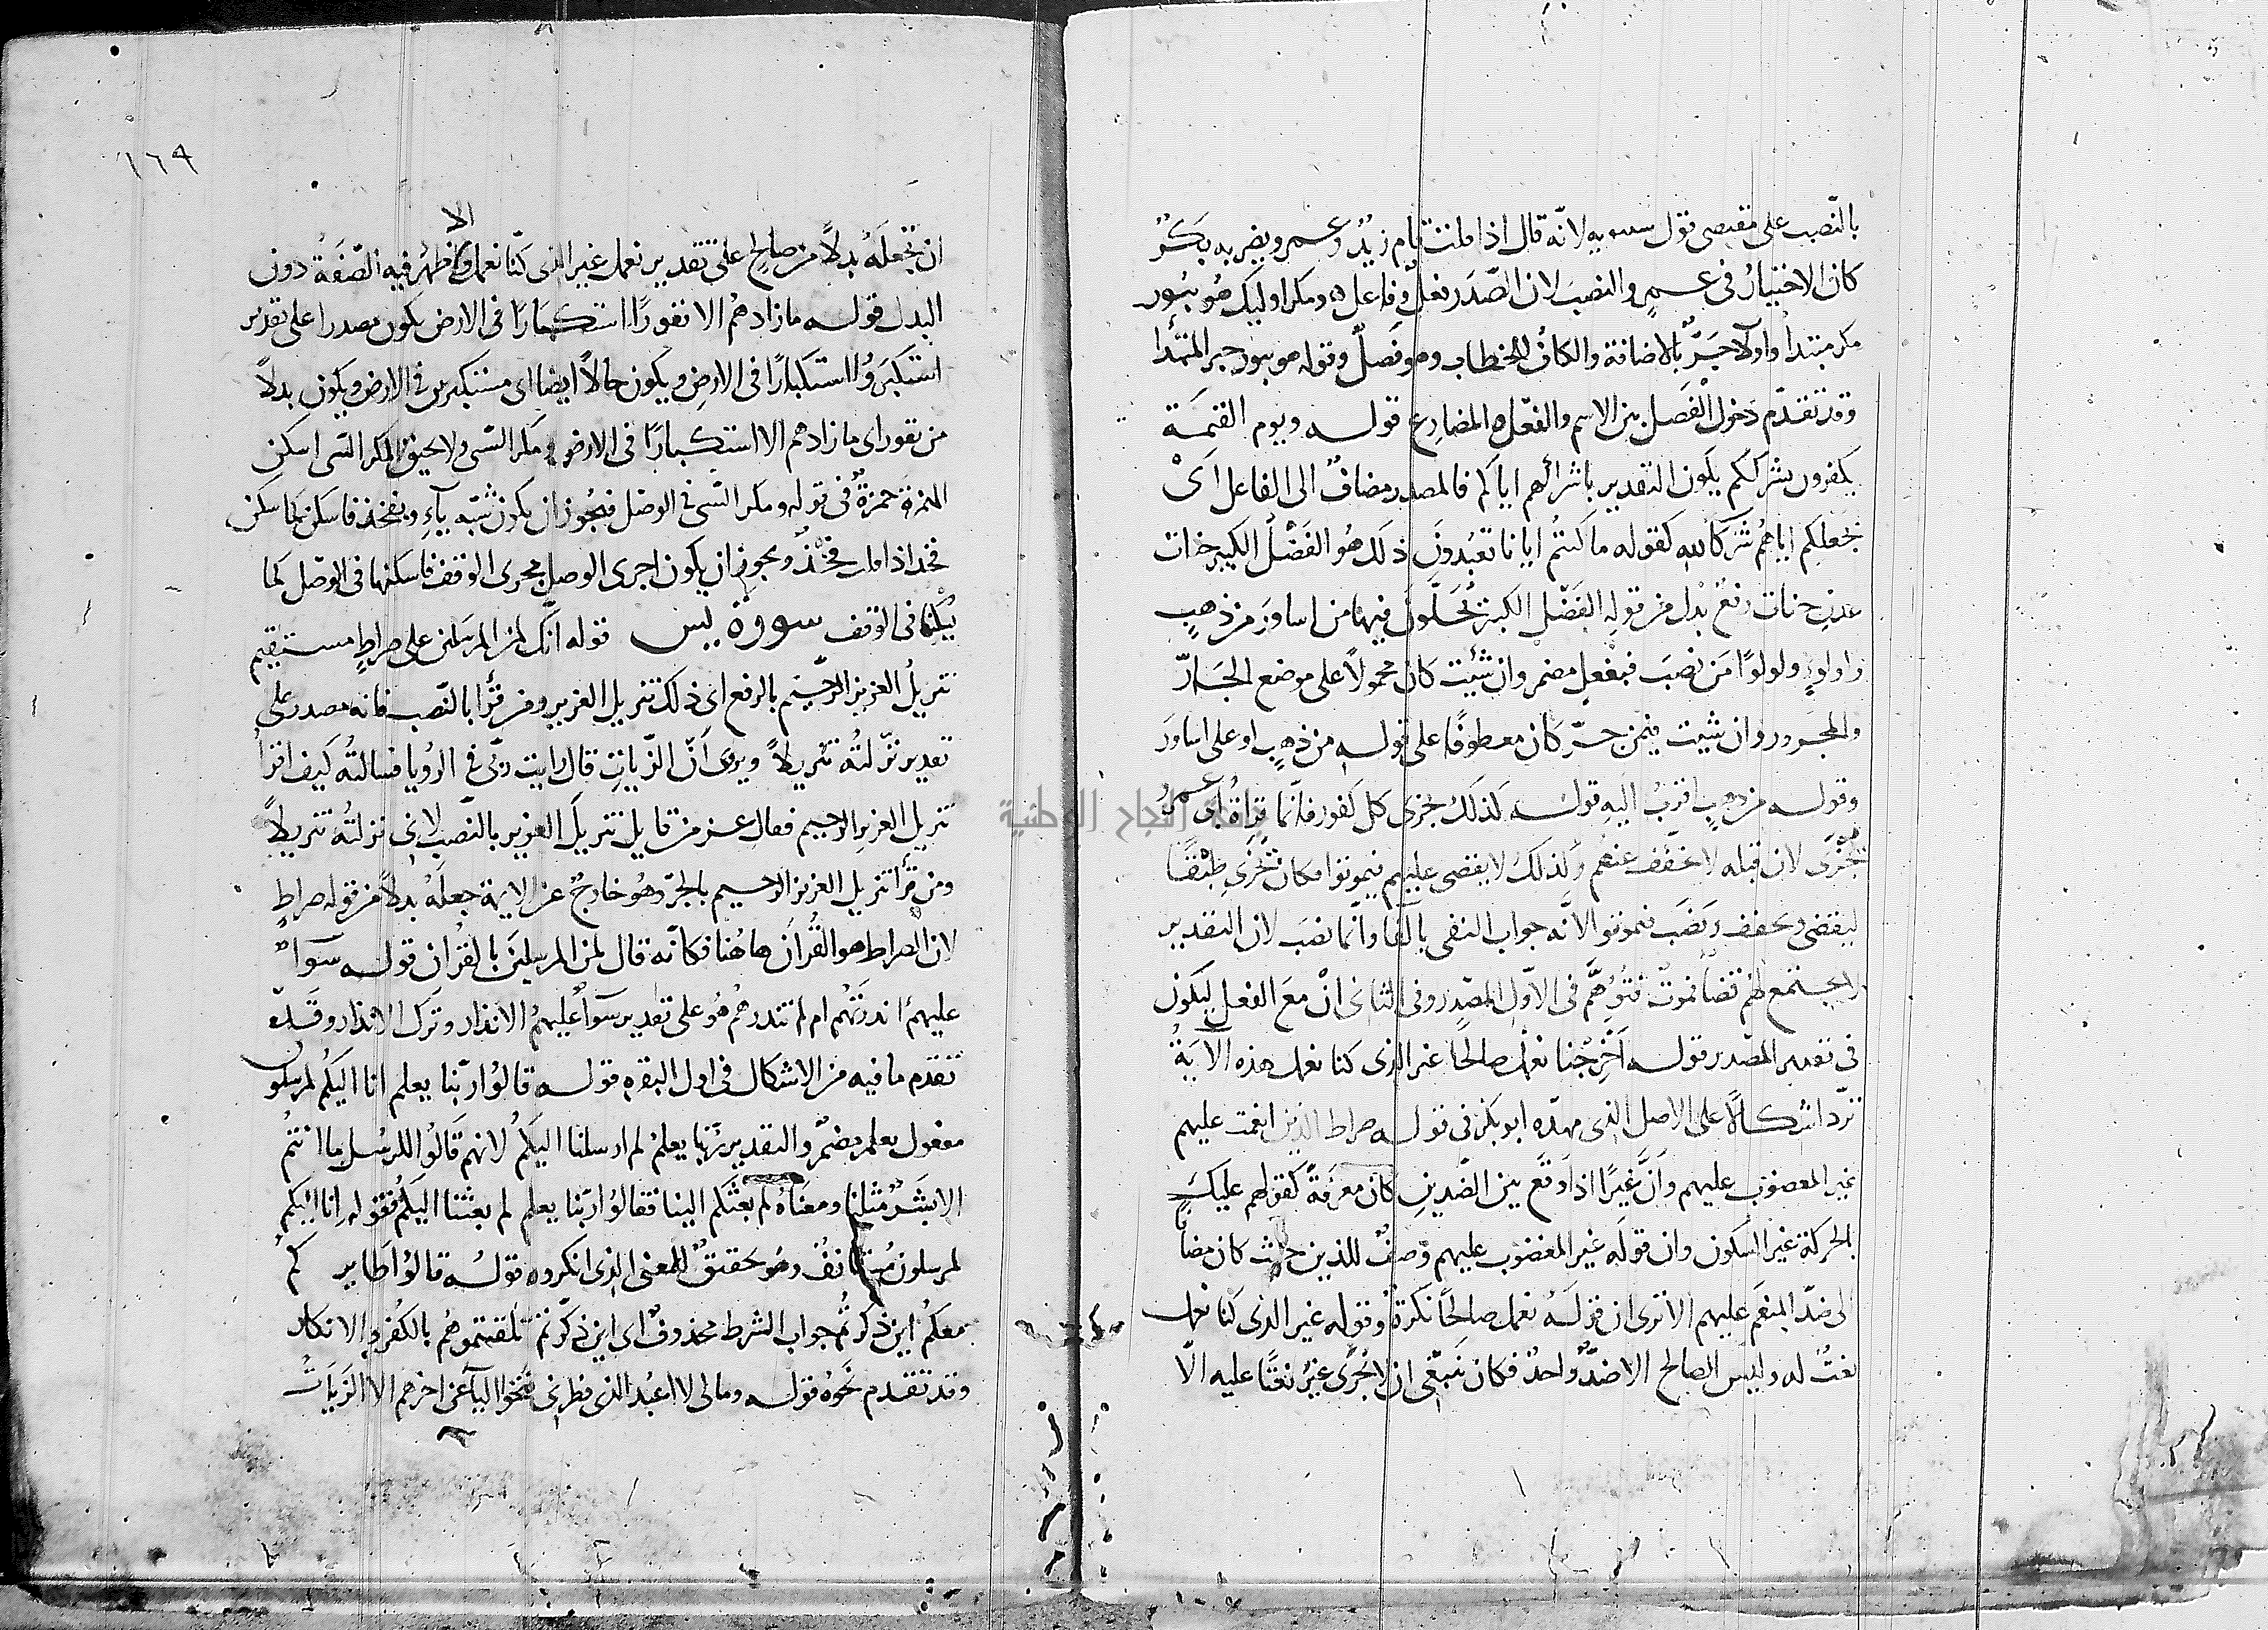 بالنصب على مقتضى قول سيبويه لانه قال اذا قلت قام زيد وعمرو يضربه بكر
كان الاختيار في عمرو النصب لان الصدر فعل وفاعل ومكر اوليك هو يبور
مكر مبتدأ واولا جر بالاضافة والكاف للخطاب وهو فصل وقوله هو يبور خبر المبتدا
وقد تقدم دخول الفصل بين الاسم والفعل المضارع قوله ويوم القيمة
يكفرون بشرككم يكون التقدير باشراكهم اياكم فالمصدر مضاف الى الفاعل اى
بجعلكم اياهم شركا لله كقوله ما كنتم ايانا تعبدون ذلك هو الفضل الكبير جنات
عدن جنات رفع بدل من قوله الفضل الكبير يحلون فيها من اساور من ذهب
ولولوا من نصب فبفعل مضمر وان شئت كان محمولا على موضع الجار
والمجرور وان شيت فيمن جر كان معطوفا على قوله من ذهب او على اساور
وقوله من ذهب اقرب اليه قوله كذلك نجزى كل كفور فانما قراة ابى عمرو
يجزى لان قبله لا يخفف عنهم وكذلك لا يقضى عليهم فيموتوا فكان يجزى طبقا
ليقضى ويخفف ونصب فيموتوا لانه جواب النفى بالفا وانما نصب لان التقدير
لا يجتمع لهم قضا فموت فتوهم فى الاول المصدر وفى الثانى ان مع الفعل ليكون
فى تقدير المصدر قوله اخرجنا نعمل صالحا غير الذى كنا نعمل هذه الاية
ترد اشكالا على الاصل الذى مهده ابو بكر فى قوله صراط الذين انعمت عليهم
غير المغضوب عليهم وان غيرا اذا وقع بين الضدين كان معرفة كقولهم عليك
بالحركة غير السكون وان قوله غير المغضوب عليهم وصف للذين حيث كان مضافا
الى ضد المنعم عليهم الا ترى ان قوله نعمل صالحا نكرة وقوله غير الذى كنا نعمل
نعت له وليس الصالح الا ضد واحد فكان ينبغى ان لا يجرى غير نعتا عليه الا
١٦٩
ان تجعله بدلا من صالح على تقدير نعمل غير الذى كنا نعمل ظهر فيه الصفة دون
الا
البدل قوله ما زادهم الا نفورا استكبارا فى الارض يكون مصدرا على تقدير
استكبروا استكبارا فى الارض ويكون حالا ايضا اى مستكبرين فى الارض ويكون بدلا
من نفور اى ما زادهم الا استكبارا فى الارض ومكر السى ولا يحيق المكر السى اسكن
الهمزة حمزة فى قوله ومكر السى فى الوصل فيجوز ان يكون شبه ياء بفخذ فاسكن كما سكن
فخذ اذا قلت فخذ ويجوز ان يكون اجرى الوصل مجرى الوقف فاسكنها فى الوصل كما
يسكنها فى الوقف سورة يس قوله انك لمن المرسلين على صراط مستقيم
تنزيل العزيز الرحيم بالرفع اى ذلك تنزيل العزيز ومن قرأ بالنصب فانه مصدر على
تقدير نزلته تنزيلا ويروى ان الزيات قال رايت ربى فى الرويا فسالته كيف اقرا
تنزيل العزيز الرحيم فقال عز من قايل تنزيل العزيز بالنصب لانى نزلته تنزيلا
ومن قرأ تنزيل العزيز الرحيم بالجر وهو خارج عن الايمة جعله بدلا من قوله صراط
لان الصراط هو القرآن هاهنا فكانه قال لمن المرسلين بالقرآن قوله سواء
عليهم انذرتهم ام لم تنذرهم هو على تقدير سوآ عليهم الانذار وترك الانذار وقد
تقدم ما فيه من الاشكال فى اول البقره قوله قالوا ربنا يعلم انا اليكم لمرسلون
مفعول يعلم مضمر والتقدير ربنا يعلم لم ارسلنا اليكم لانهم قالوا للرسل ما انتم
الا بشر مثلنا ومعناه لم بعثكم الينا فقالوا ربنا يعلم لم بعثنا اليكم فقوله انا اليكم
لمرسلون مستانف وهو تحقيق للمعنى الذى انكروه قوله قالوا طايركم
معكم اين ذكرتم جواب الشرط محذوف اى اين ذكرتم تلقيتموهم بالكفر والانكار
وقد تقدم نحوه قوله ومالى لا اعبد الذى فطرنى فتحوا اليآ عن اخرهم الا الزيات
جامعة النجاح الوطنية